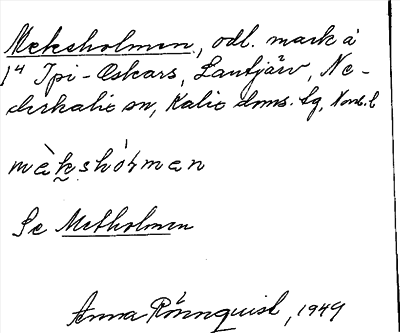 Meksholmen, odl. mark å
14 Ipi-Oskars, Lantjärv, Ne-
derkalix sn, Kalix doms. lg, Norrb. l
mèkshólman
Se Metholmen
Anna Rönnquist, 1949